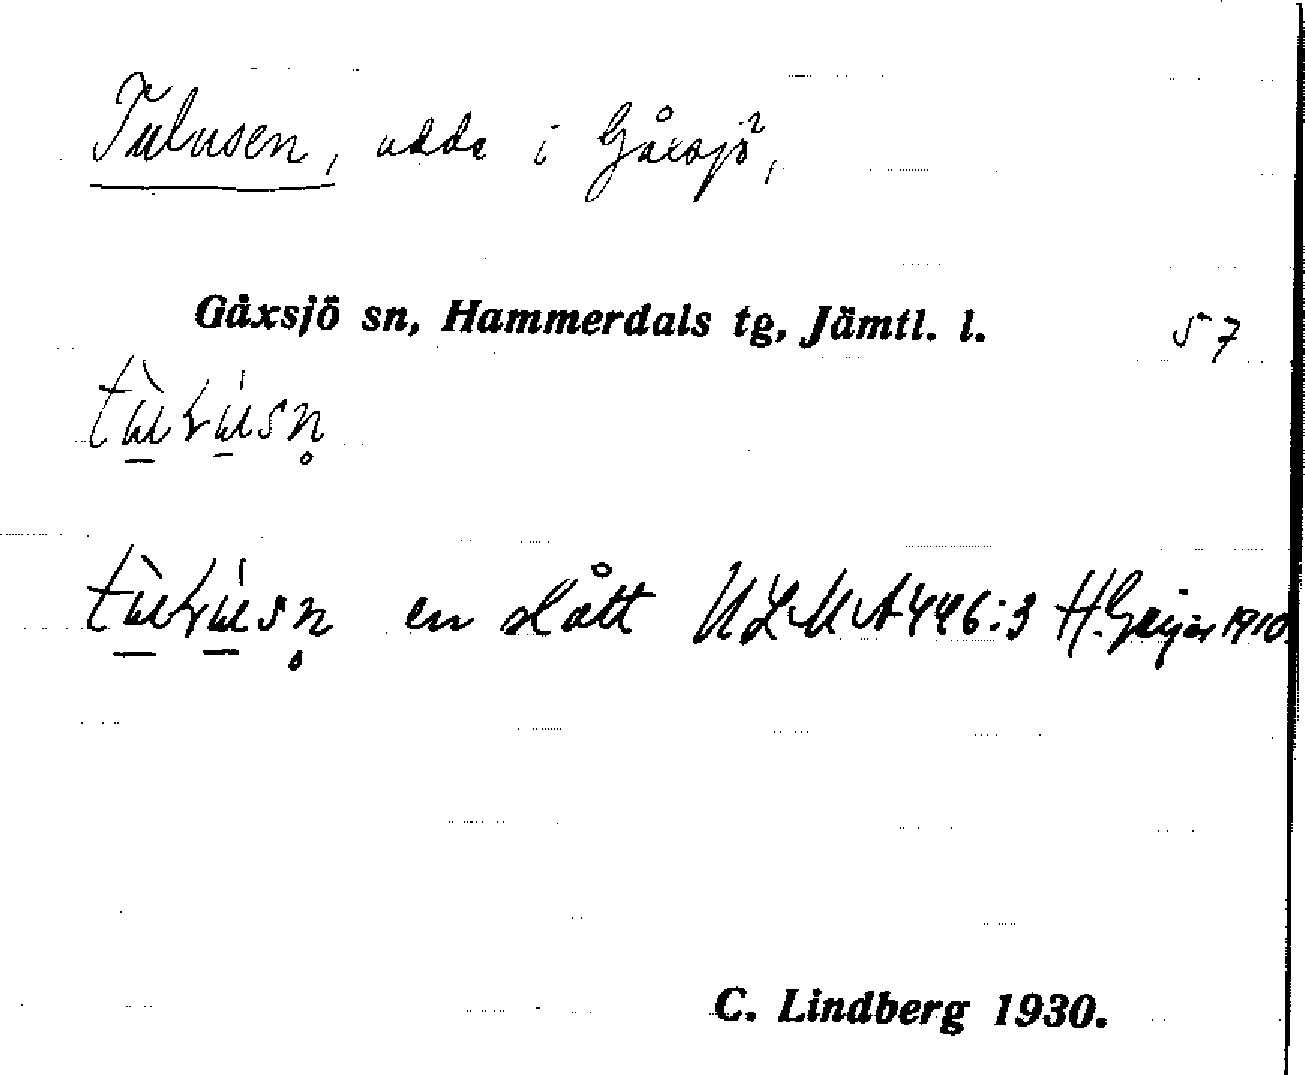 Tulusen, udde i Gåxsjö,
Gåxsjö sn, Hammerdals tg, Jämtl. l. 57
en slått ULMA 446:3 H. Geijer 1910.
C. Lindberg 1930.